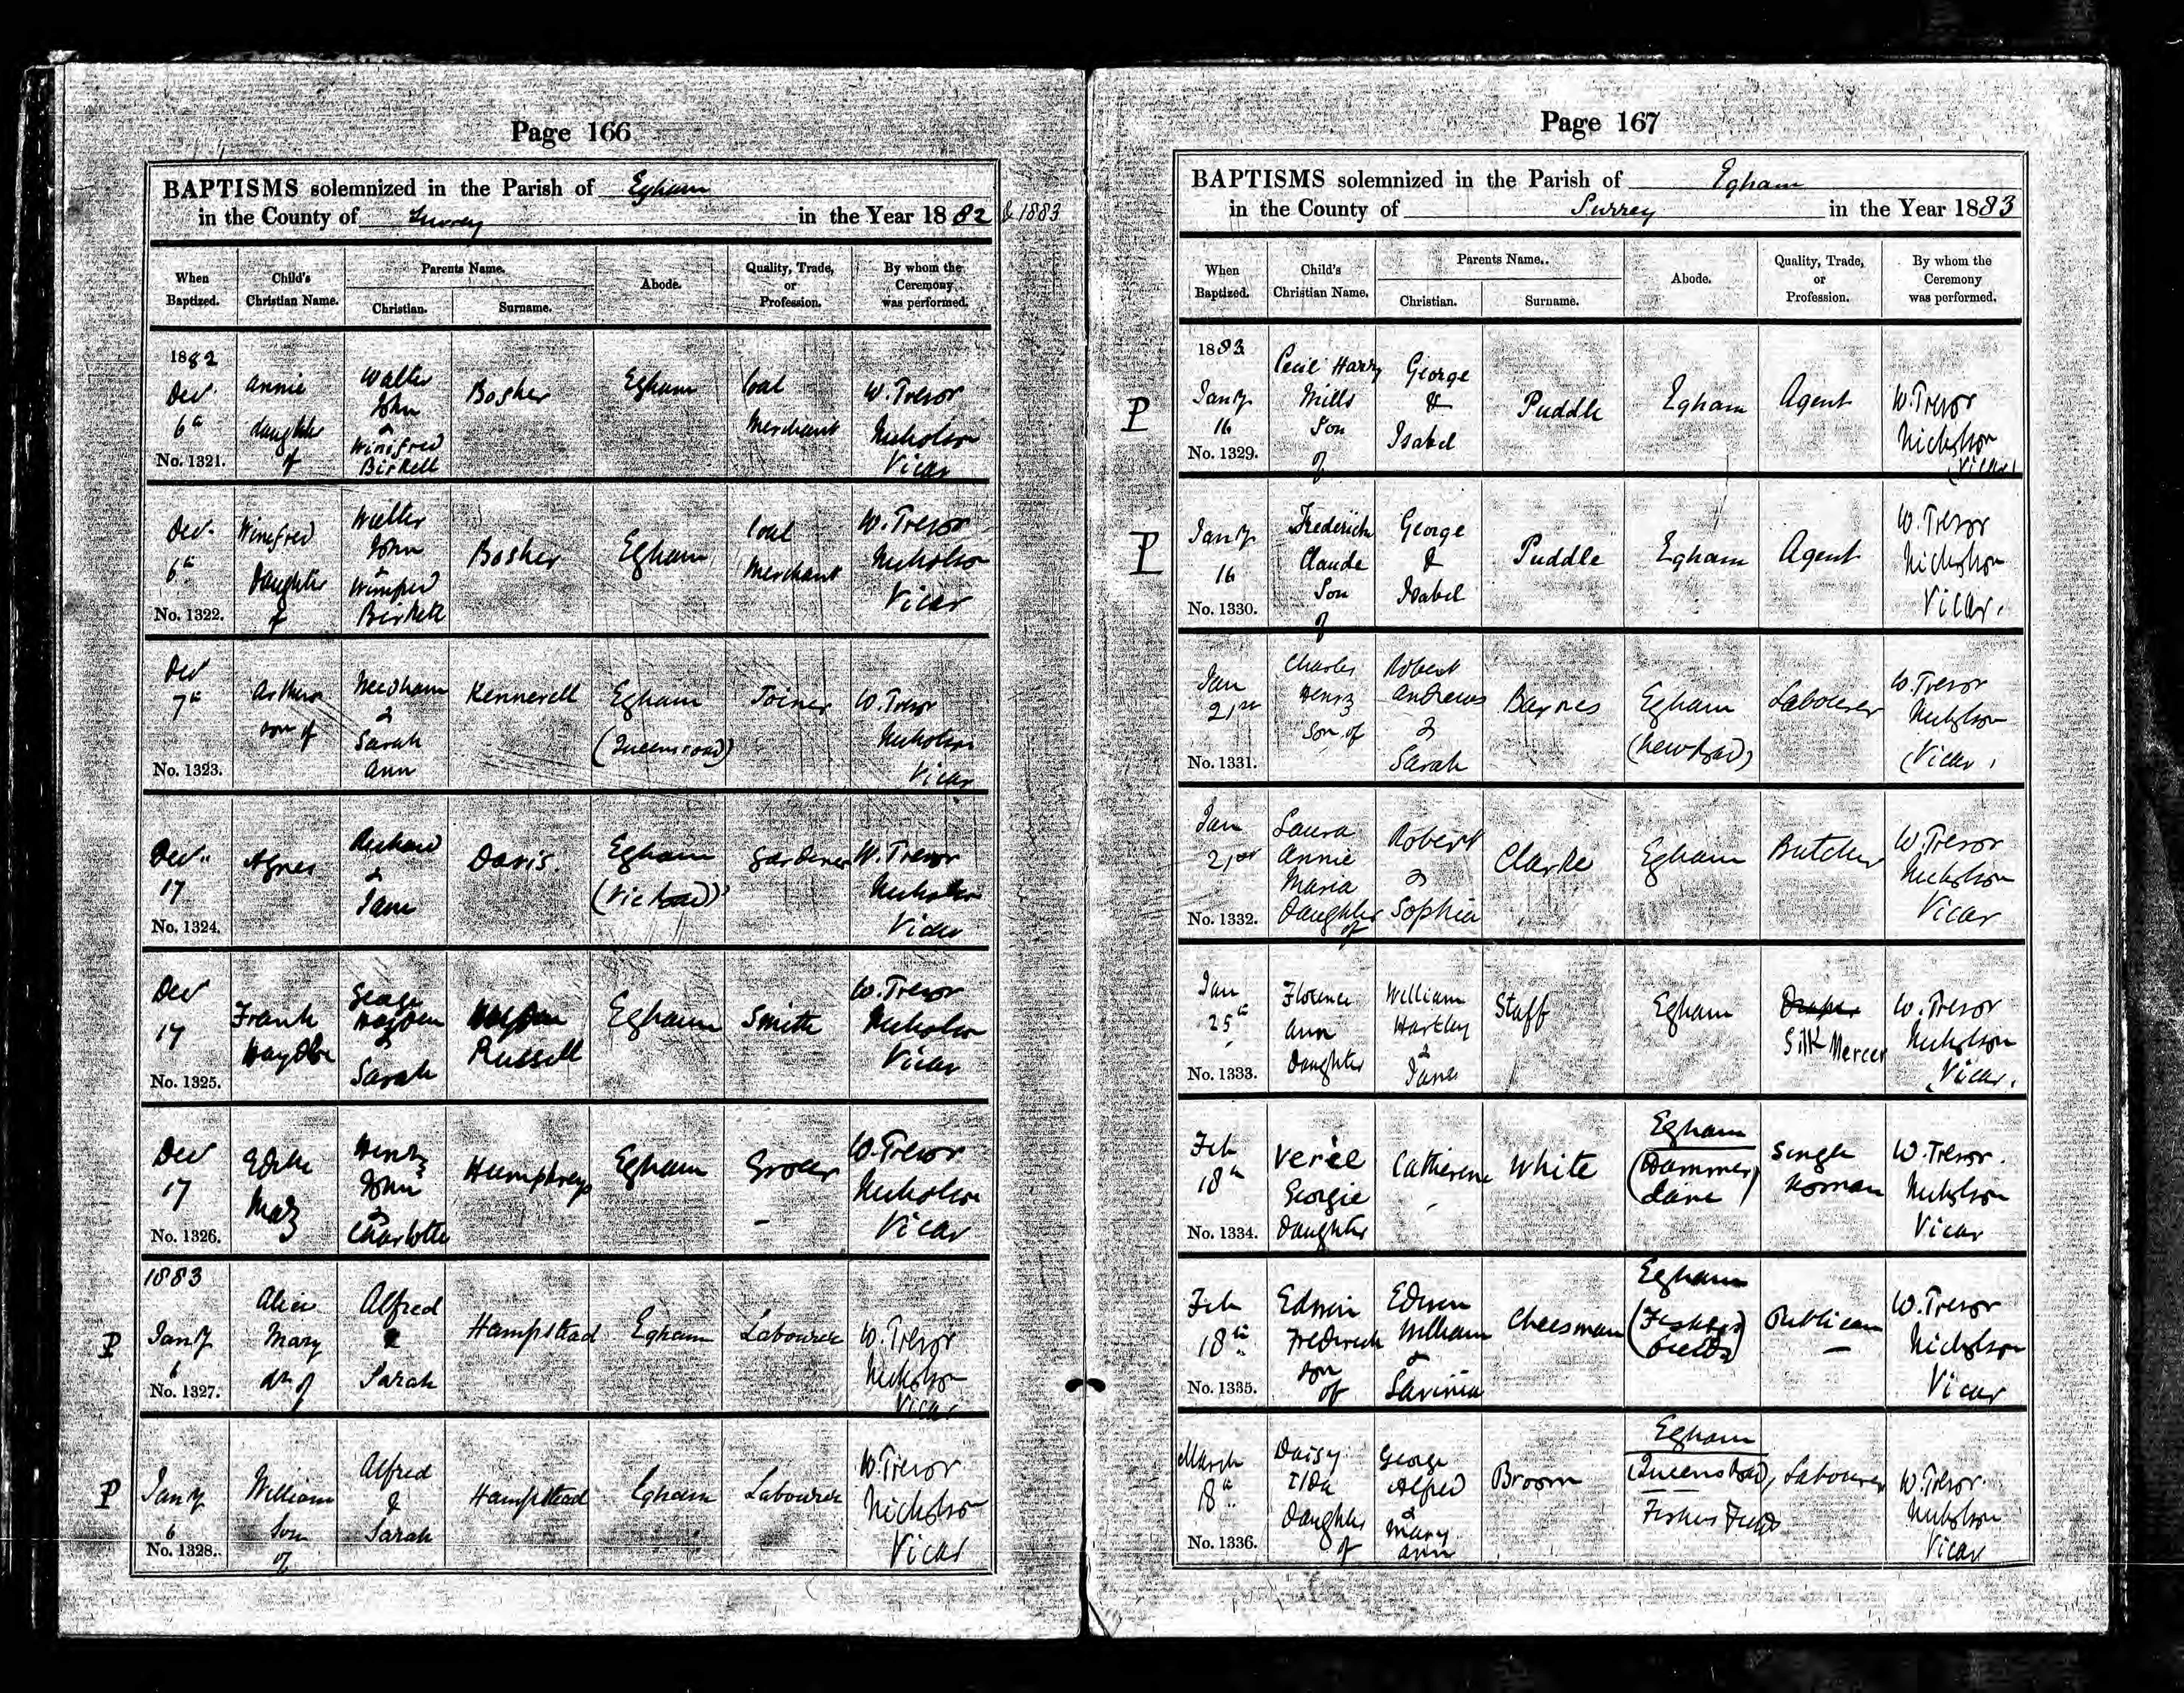 Page 166
BAPTISMS solemnized in the Parish of Egham
in the County of Surrey in the Year 1882 & 1883
When Baptized.
Child's Christian Name.
Parents Name.
Christian.
Surname.
Abode.
Quality, Trade, or Profession.
By whom the Ceremony was performed.
1882
Decr
6th
No. 1321.
Annie
daughter
of
Walter
John
&
Winifred
Birkett
Bosher
Egham
Coal
Merchant
W. Trevor
Nicholson
Vicar
Decr
6th
No. 1322.
Winifred
Daughter
of
Walter
John
&
Winifred
Birkett
Bosher
Egham
Coal
Merchant
W. Trevor
Nicholson
Vicar
Decr
7th
No. 1323.
Arthur
son of
Needham
&
Sarah
Ann
Kennerell
Egham
(Queens road)
Joiner
W. Trevor
Nicholson
Vicar
Decr
17
No. 1324.
Agnes
Richard
&
Jane
Davis.
Egham
(Vic Road)
Gardener
W. Trevor
Nicholson
Vicar
Decr
17
No. 1325.
Frank
Haydon
George
Haydon
&
Sarah
Russell
Egham
Smith
W. Trevor
Nicholson
Vicar
Decr
17
No. 1326.
Edith
May
Henry
John
&
Charlotte
Humphreys
Egham
Grocer
W. Trevor
Nicholson
Vicar
1883
P
Jany
6
No. 1327.
Alice
Mary
dr of
Alfred
&
Sarah
Hampstead
Egham
Labourer
W. Trevor
Nicholson
Vicar
P
Jany
6
No. 1328.
William
Son
of
Alfred
&
Sarah
Hampstead
Egham
Labourer
W. Trevor
Nicholson
Vicar
Page 167
BAPTISMS solemnized in the Parish of Egham
in the County of Surrey in the Year 1883
When Baptized.
Child's Christian Name.
Parents Name.
Christian.
Surname.
Abode.
Quality, Trade, or Profession.
By whom the Ceremony was performed.
1883
P
Jany
16
No. 1329.
Cecil Harry
Mills
Son
of
George
&
Isabel
Puddle
Egham
Agent
W. Trevor
Nicholson
(Vicar)
P
Jany
16
No. 1330.
Frederick
Claude
Son
of
George
&
Isabel
Puddle
Egham
Agent
W. Trevor
Nicholson
Vicar.
Jan
21st
No. 1331.
Charles
Henry
Son of
Robert
Andrews
&
Sarah
Baynes
Egham
(New Road)
Labourer
W. Trevor
Nicholson
(Vicar)
Jan
21st
No. 1332.
Laura
Annie
Maria
Daughter
of
Robert
&
Sophia
Clarke
Egham
Butcher
W. Trevor
Nicholson
Vicar
Jan
25th
No. 1333.
Florence
Ann
Daughter
William
Hartley
&
Jane
Staff
Egham
Draper
Silk Mercer
W. Trevor
Nicholson
Vicar.
Feb
18th
No. 1334.
Georgie
Daughter
Catherine
White
Egham
(Hammer
Lane)
Single
woman
W. Trevor.
Nicholson
Vicar
Feb
18th
No. 1335.
Edwin
Frederick
son
of
Edwin
William
&
Lavinia
Cheesman
Egham
(Fishers
Fields)
Publican
W. Trevor
Nicholson
Vicar
March
18th
No. 1336.
Daisy
Ilda
Daughter
of
George
Alfred
&
Mary
Ann
Broom
Egham
Queens Road,
Fishers Fields
Labourer
W. Trevor.
Nicholson
Vicar